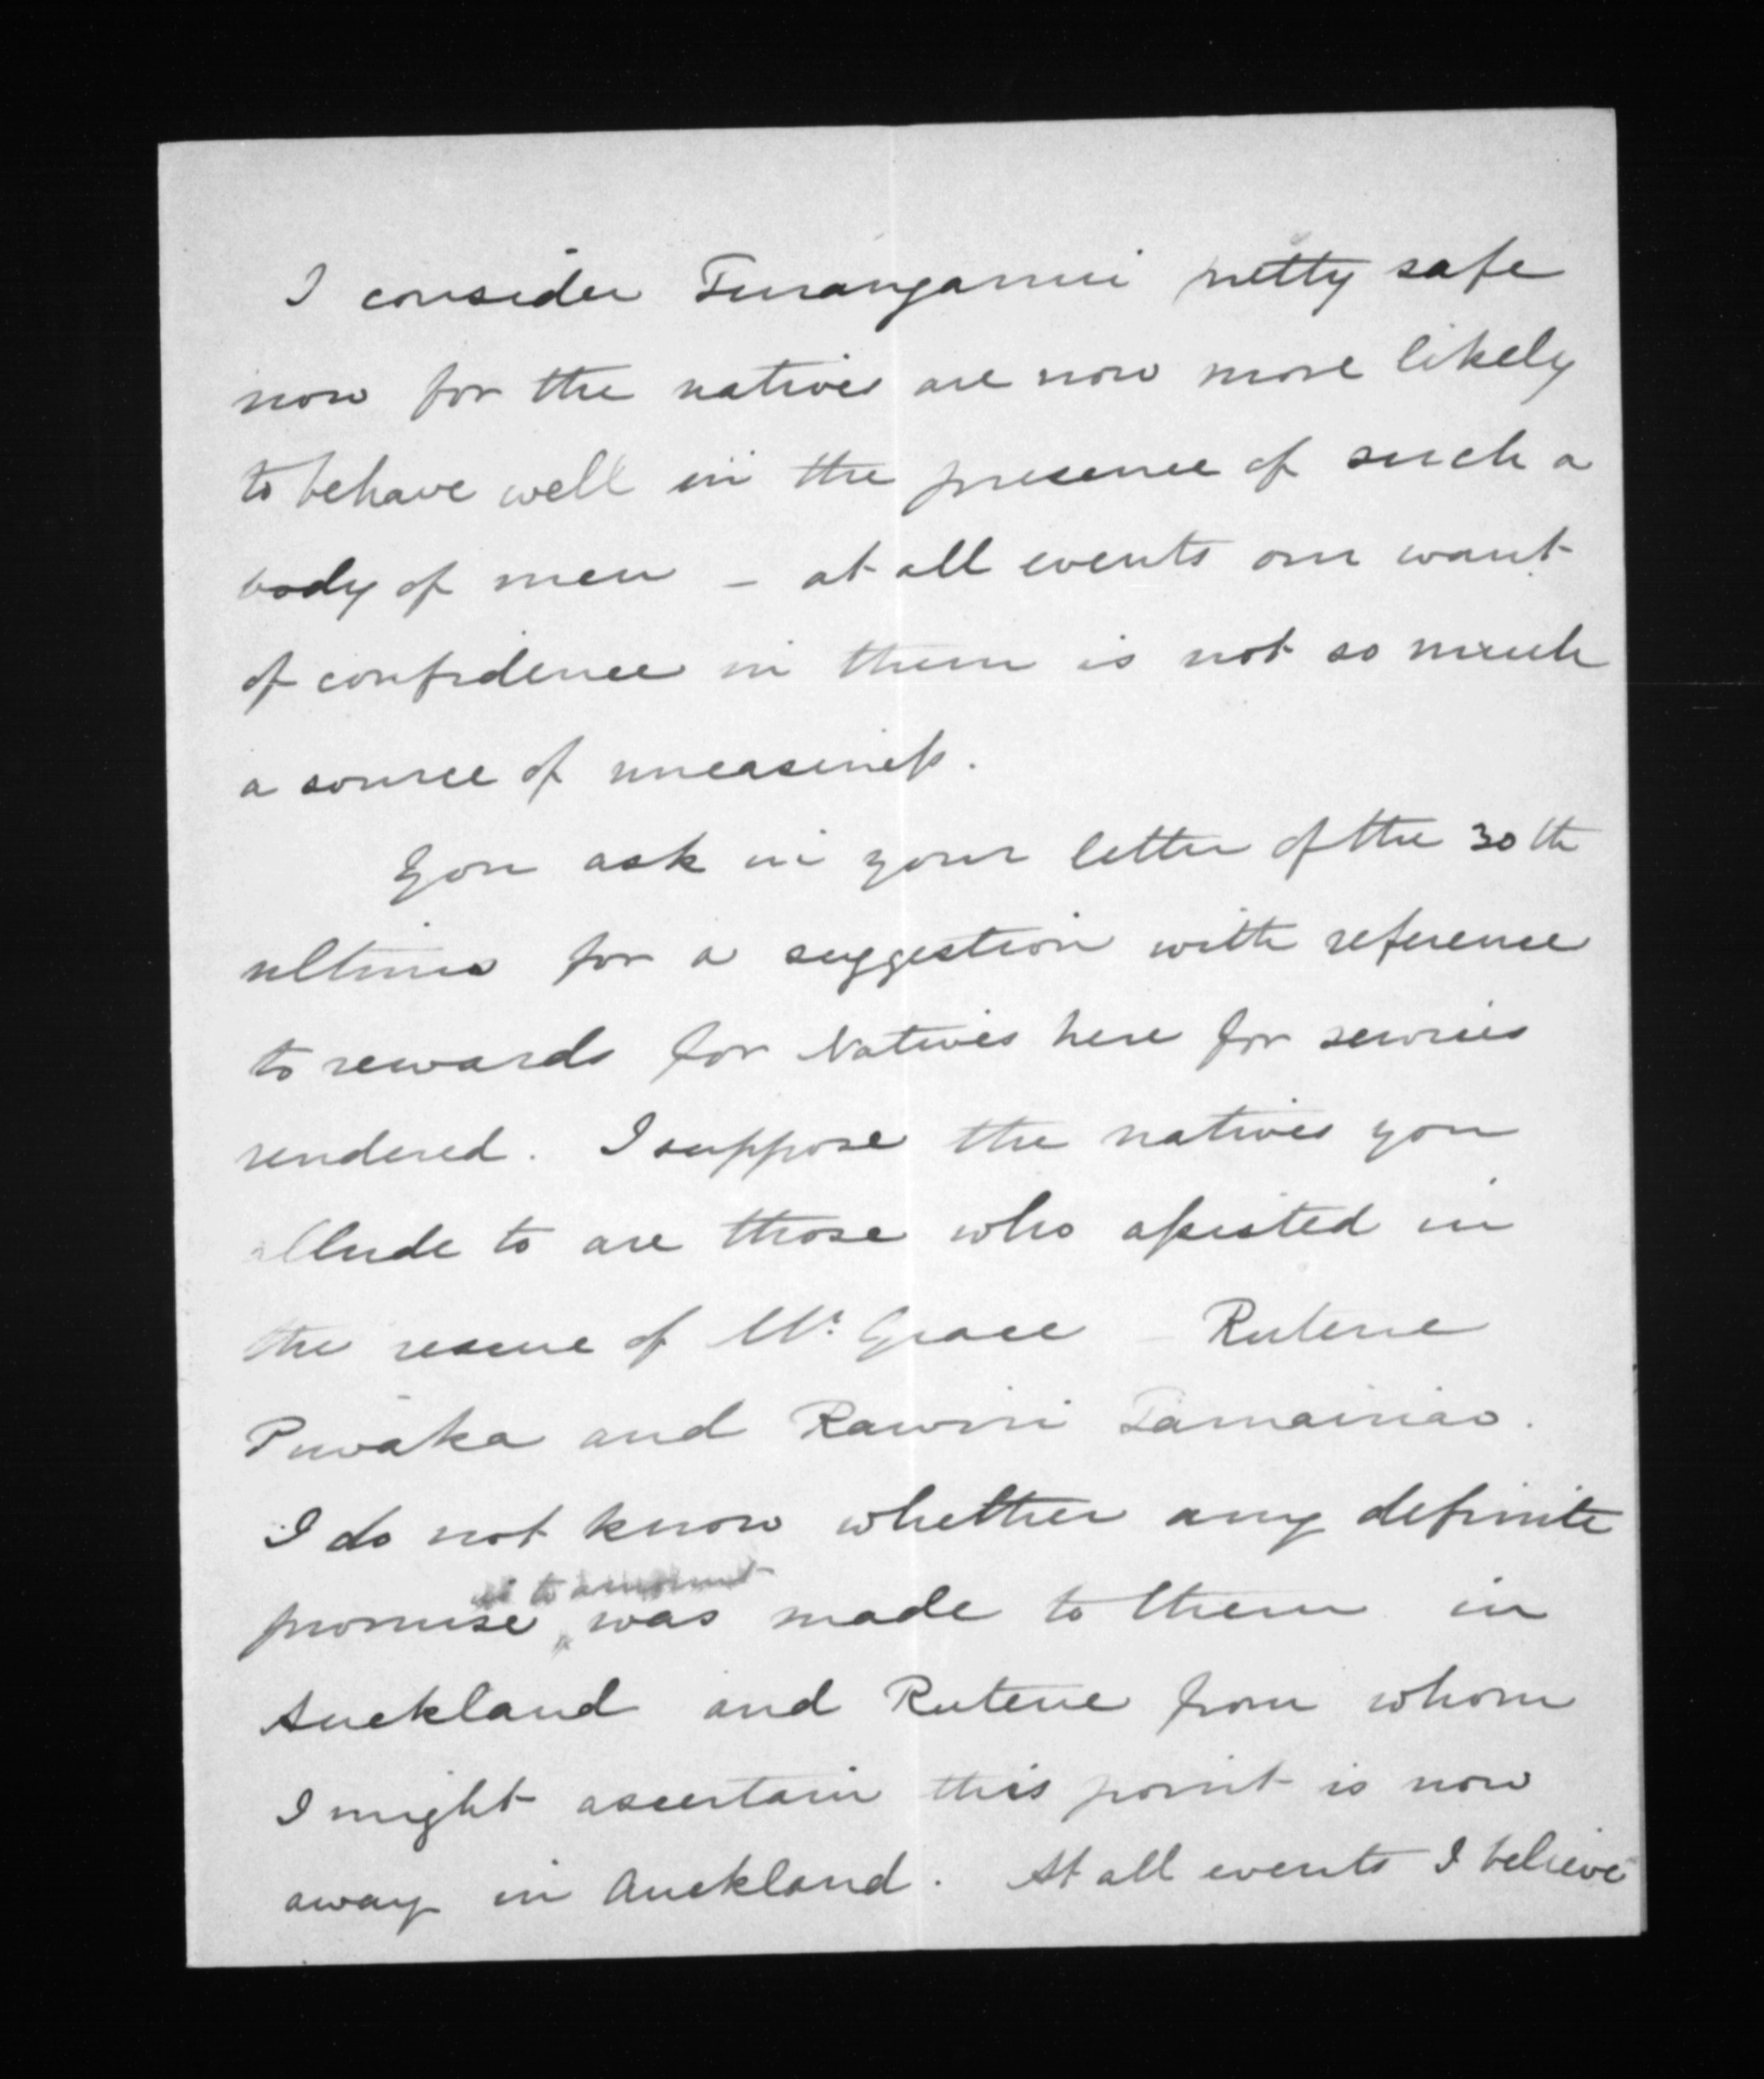 I consider Turanganui pretty safe
now for the natives are now more likely
to behave well in the presence of such a
body of men – at all events our want
of confidence in them is not so much
a source of uneasiness.
You ask in your letter of the 30th
ultimo for a suggestion with reference
to rewards for Natives here for services
rendered. I suppose the natives you
allude to are those who assisted in
the rescue of Mr. Grace – Rutene
Puwaka and Rawiri Tamainiao.
I do not know whether any definite
as to amount
promise was made to them in
Auckland and Rutene from whom
I might ascertain this point is now
away in Auckland. At all events I believe